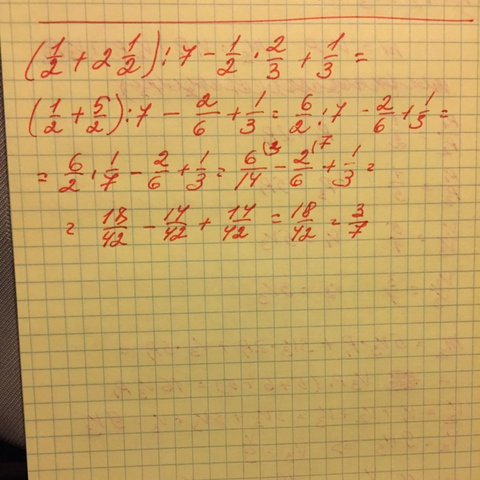 (1/2 + 2 1/2) : 7 - 1/2 · 2/3 + 1/3 =
(1/2 + 5/2) : 7 - 2/6 + 1/3 = 6/2 : 7 - 2/6 + 1/3 =
= 6/2 · 1/7 - 2/6 + 1/3 = 6/14 (3 - 2/6 (7 + 1/3 =
= 18/42 - 14/42 + 14/42 = 18/42 = 3/7